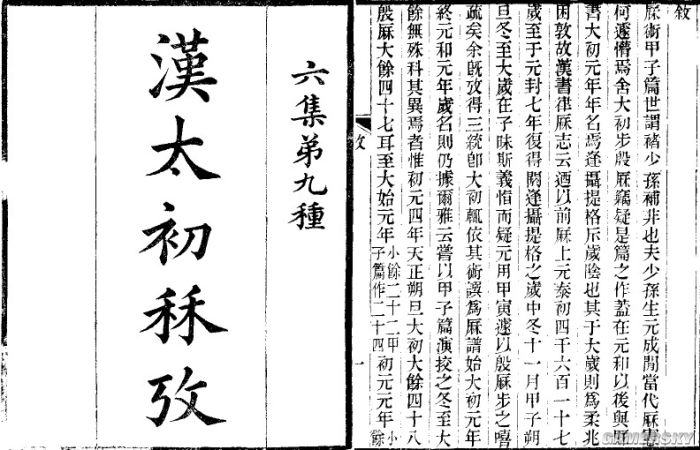 敘
厤術甲子篇世謂褚少孫補非也夫少孫生元成閒當代厤憲
何遽懵焉舍大初步殷厤竊疑是篇之作蓋在元和以後與厤
書大初元年年名焉逢攝提格斥歲陰也其于大歲則爲柔兆
困敦故漢書律厤志云迺以前厤上元泰初四千六百一十七
歲至于元封七年復得閼逢攝提格之歲中冬十一月甲子朔
旦冬至大歲在子昧斯義恉而疑元用甲寅遽以殷厤步之嘻
疏矣余旣攷得三統卽大初輒依其術譔爲厤譜始大初元年
終元和元年歲名則仍據爾雅云嘗以甲子篇演挍之冬至大
餘無殊科其異焉者惟初元四年天正朔旦大初大餘四十八
殷厤大餘四十七耳至大始元年小餘二十二甲子篇作二十四初元元年小餘
攷
一
六集第九種
漢太初秝攷
GAMERSKY